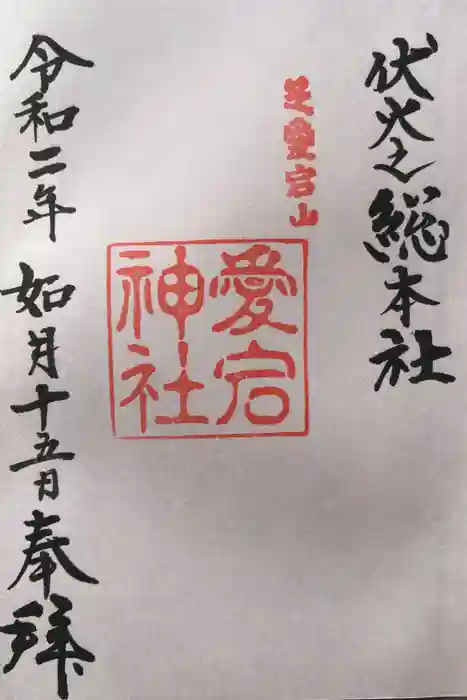 伏火之総本社
芝愛宕山
愛宕
神社
令和二年 如月十五日奉拝